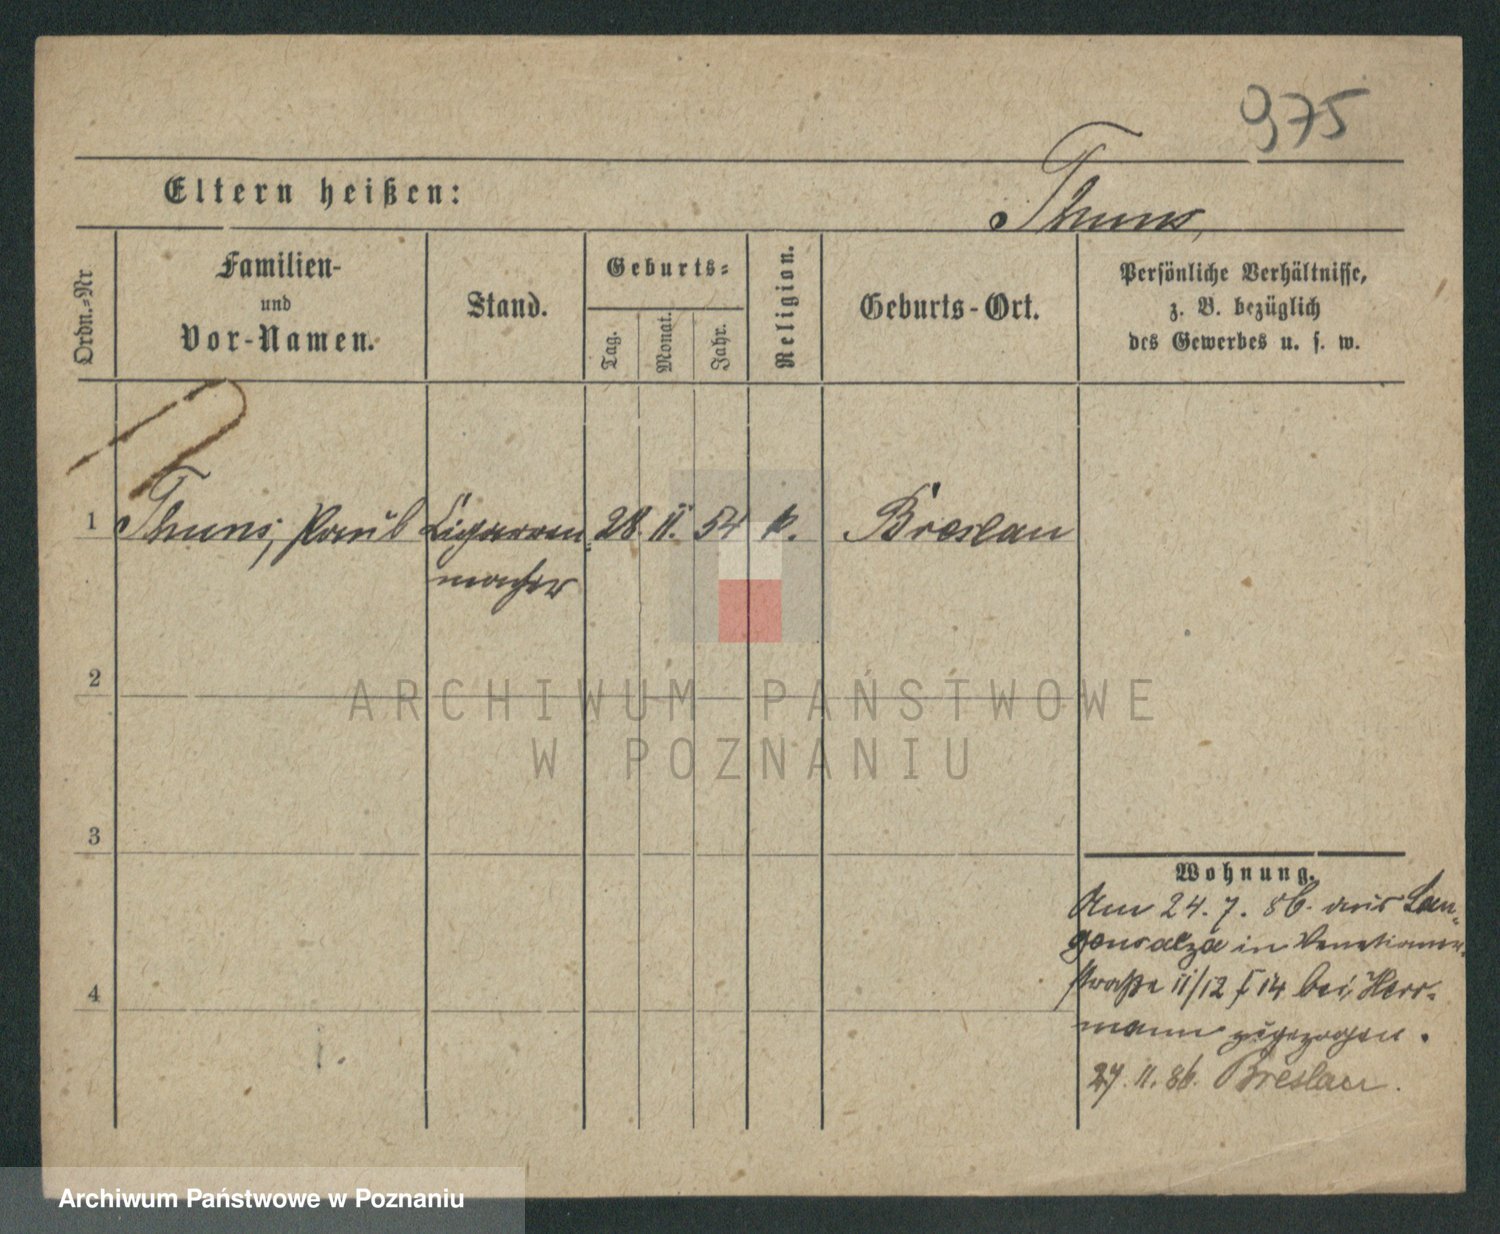 975
Eltern heißen:
Thuns,
Ordn.-Nr
Familien-
und
Vor-Namen.
Stand.
Geburts-
Tag.
Monat.
Jahr.
Religion.
Geburts-Ort.
Persönliche Verhältnisse,
z. B. bezüglich
des Gewerbes u. s. w.
1 Thuns, Paul Cigarren- 28. II. 54 k. Breslau
macher
2
ARCHIWUM PAŃSTWOWE
W POZNANIU
3
Wohnung.
Am 24. 7. 86. aus Lan-
gensalza in Venetianer-
4
straße 11/12 bei Herr-
mann zugezogen.
27. 11. 86. Breslau.
Archiwum Państwowe w Poznaniu